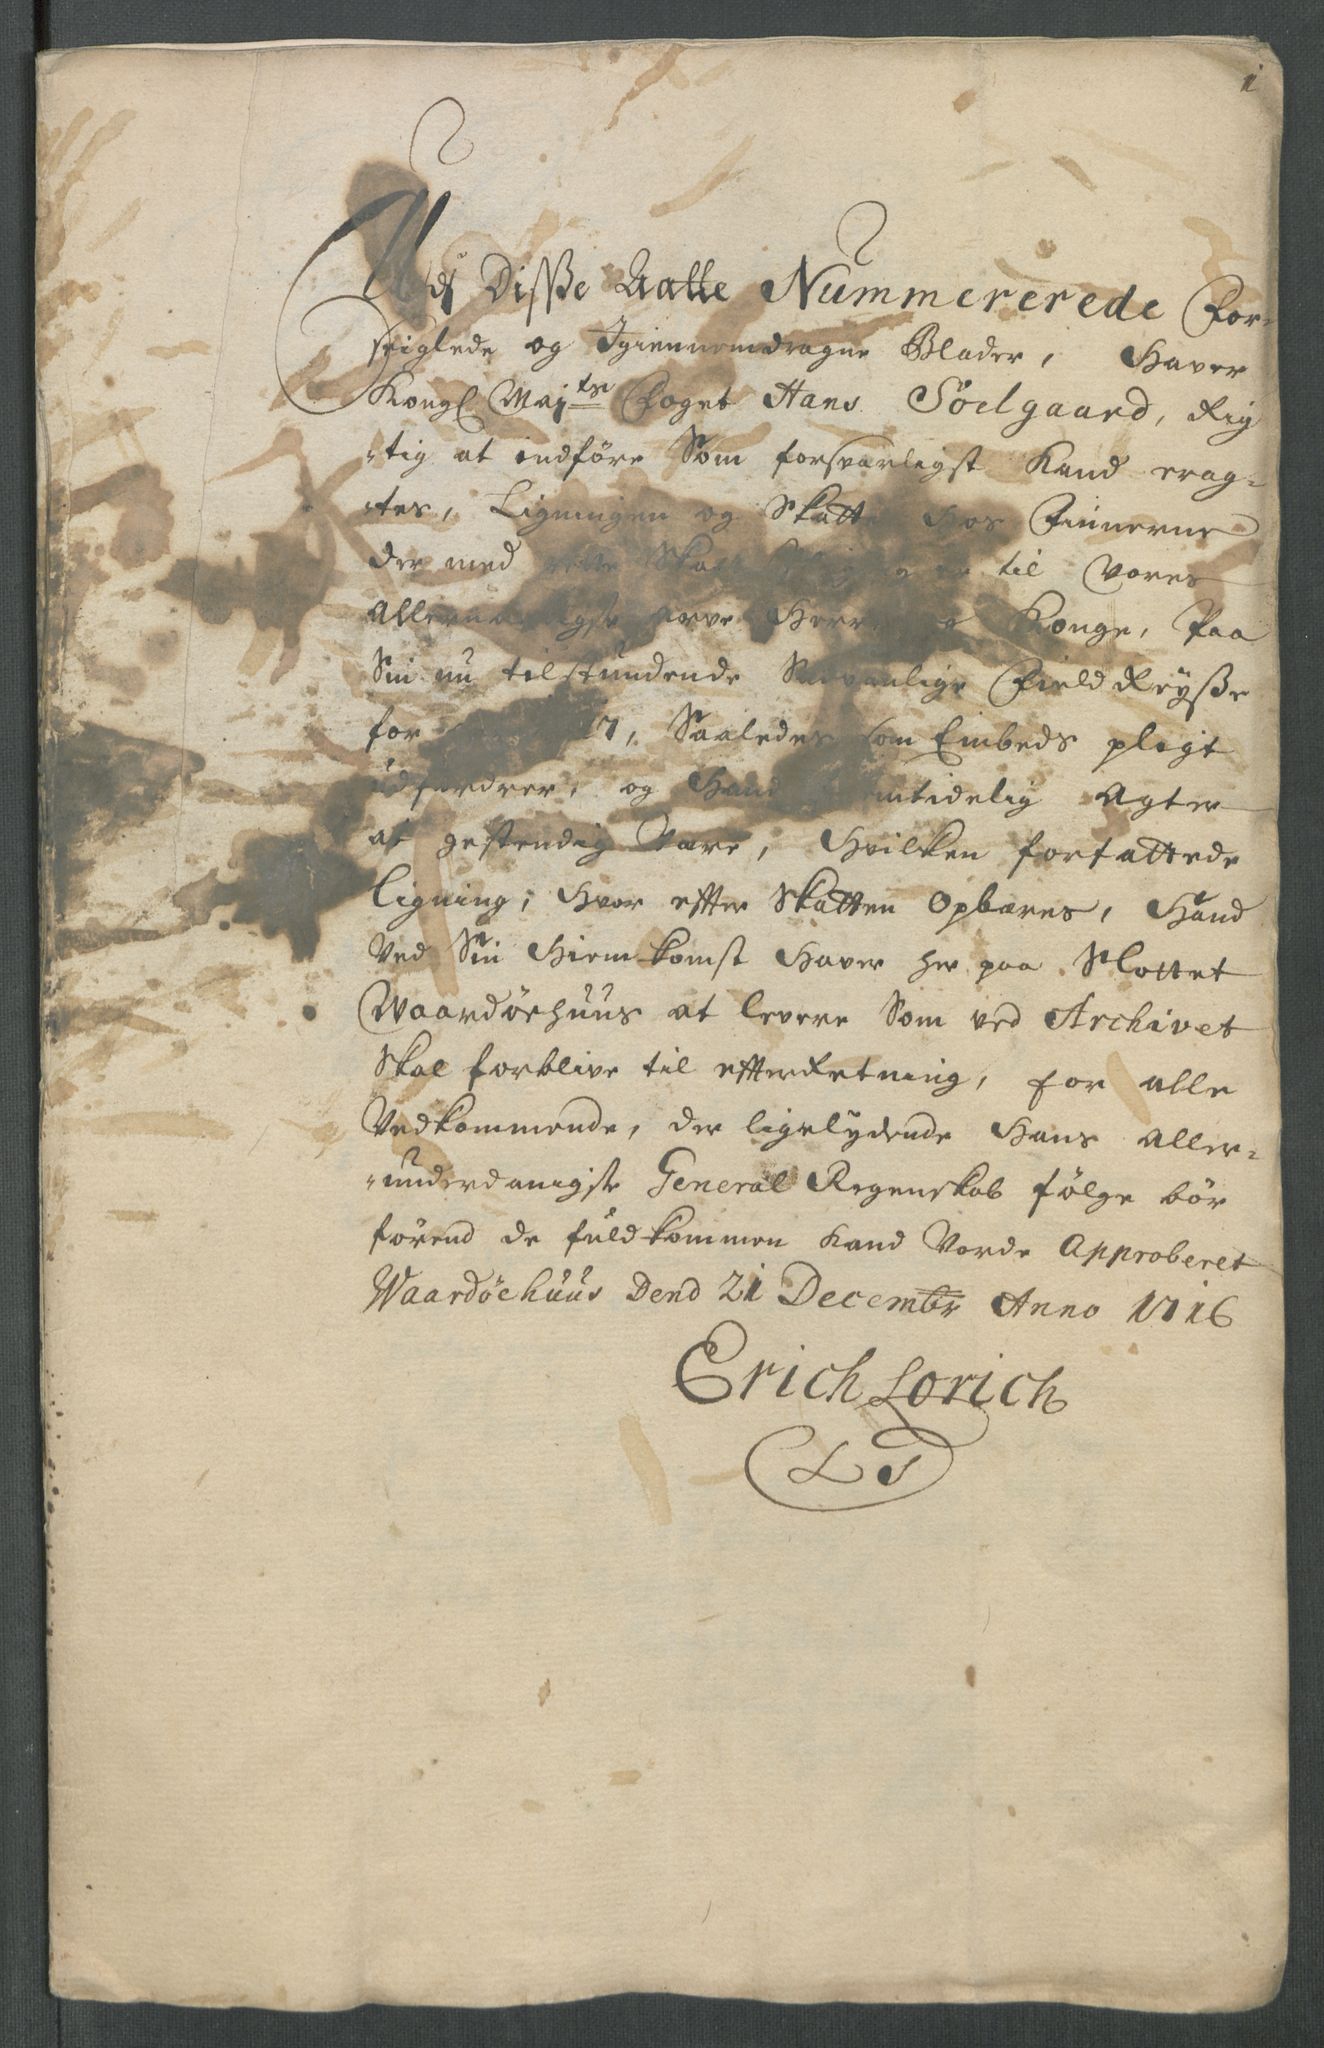 1
Udj Disse Aatte Nummererede For-
seiglede og Igiennemdragne Blader, Haver
Kongl Maj:ts Foget Hans Söelgaard, Rig
-tig at indföre Som forsvarligst Kand erag-
-tes, Ligningen og Skatten Hos Finnerne
der med rette til Vores
Allernaadigste Arve Herre og Konge, Paa
Sin nu tilstundende Sædvanlige Field Reysse
for 7, Saaledes som Embeds pligt
udfordrer, og Hand Fremtidelig Agter
at gestendig Være, Hvilken forfattede
Ligning, Hvor effter Skatten Opbæres, Hand
Ved Sin Hiemkomst Haver her paa Slottet
Waardöehuus at levere Som ved Archivet
Skal forblive til effterRetning, for alle
Vedkommende, der ligelydende Hans Aller-
-underdanigste General Regenskab fölge bör
förend de fuldkommen Kand Vorde Approberet
Waardöehuus Dend 21 Decembr Anno 1716
Erich Lorich
LS